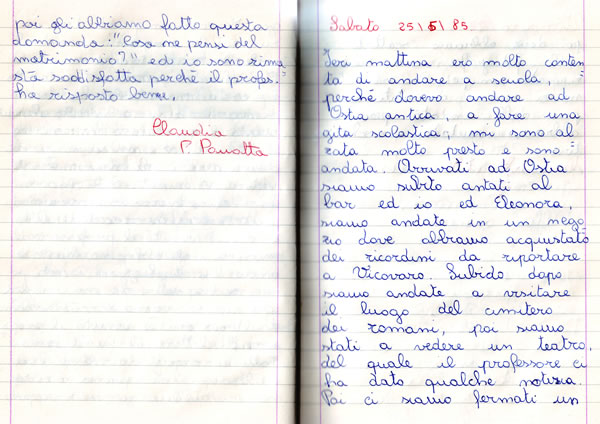 poi gli abbiamo fatto questa
domanda: "Cosa me pensi del
matrimonio?" ed io sono rima=
sta soddisfatta perché il profes.
ha risposto bene.
Claudia
P. Panatta
Sabato 25/5/85
Ieri mattina ero molto conten=
ta di andare a scuola,
perché dovevo andare ad
Ostia antica, a fare una
gita scolastica, mi sono al=
zata molto presto e sono
andata. Arrivati ad Ostia
siamo subito antati al
bar ed io ed Eleonora,
siamo andate in un nego=
zio dove abbiamo acquistato
dei ricordini da riportare
a Vicovaro. Subido dopo
siamo andate a visitare
il luogo del cimitero
dei romani, poi siamo
stati a vedere un teatro,
del quale il professore ci
ha dato qualche notizia.
Poi ci siamo fermati un